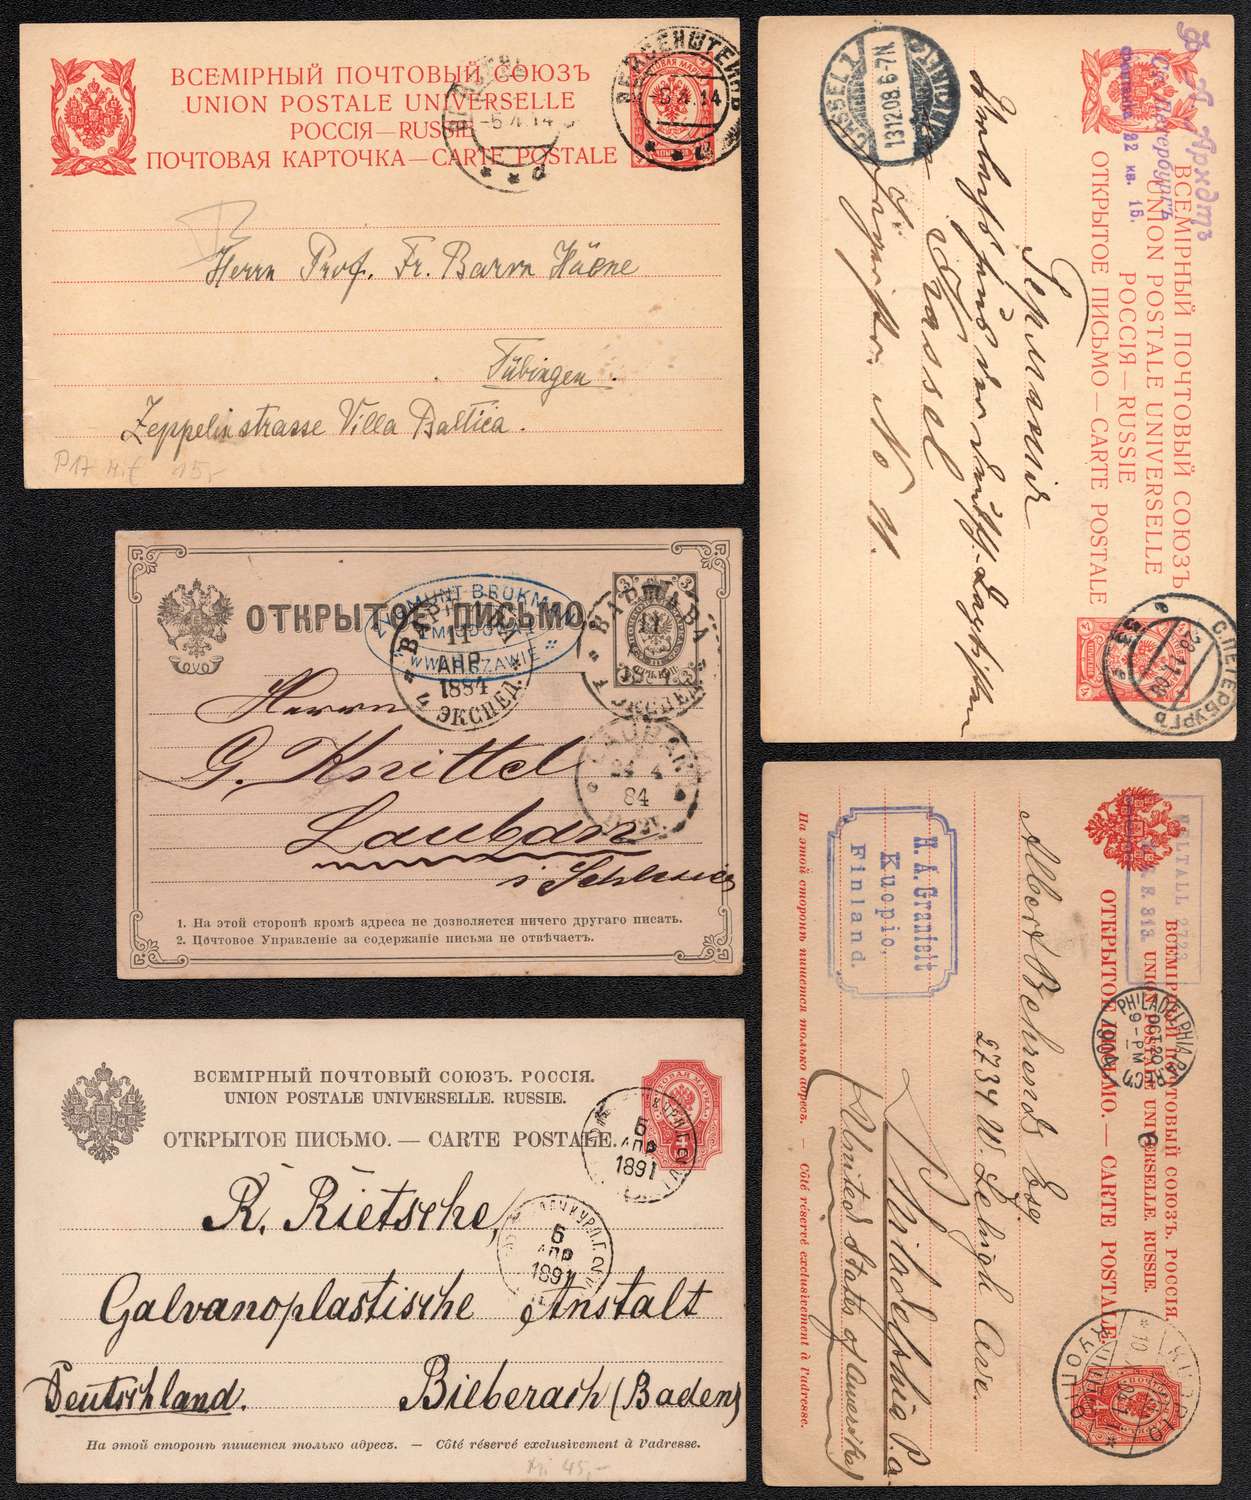 ВСЕМІРНЫЙ ПОЧТОВЫЙ СОЮЗЪ
UNION POSTALE UNIVERSELLE
РОССІЯ—RUSSIE
ПОЧТОВАЯ КАРТОЧКА—CARTE POSTALE
Herrn Prof. Fr. Baron Huene
Tübingen.
Zeppelinstrasse Villa Baltica.
P17 15,-
CASSEL 1
13.12.08. 6-7N.
Ф. А. Архдтъ
С.-Петербургъ
22 кв. 15.
ВСЕМІРНЫЙ ПОЧТОВЫЙ СОЮЗЪ
UNION POSTALE UNIVERSELLE
РОССІЯ—RUSSIE
ОТКРЫТОЕ ПИСЬМО—CARTE POSTALE
Германія
Kassel
No 11.
С.ПЕТЕРБУРГЪ
28.11.08
ОТКРЫТОЕ ПИСЬМО.
ZYGMUNT BROKMAN
W WARSZAWIE
ВАРШАВА
11
АПР
1884
4 ЭКСПЕД.
ВАРШАВА
11
1 ЭКСПЕД.
3
LAUBAN
24 4
84
Herrn
G. Knittel
Lauban
i/Schlesien
1. На этой сторонѣ кромѣ адреса не дозволяется ничего другаго писать.
2. Почтовое Управленіе за содержаніе письма не отвѣчаетъ.
ВСЕМІРНЫЙ ПОЧТОВЫЙ СОЮЗЪ. РОССІЯ.
UNION POSTALE UNIVERSELLE. RUSSIE.
ОТКРЫТОЕ ПИСЬМО. — CARTE POSTALE.
5
АПР
1891
5
АПР
1891
R. Rietsche,
Galvanoplastische Anstalt
Deutschland. Bieberach (Baden)
На этой сторонѣ пишется только адресъ. — Côté réservé exclusivement à l'adresse.
Mi 45,-
ВСЕМІРНЫЙ ПОЧТОВЫЙ СОЮЗЪ. РОССІЯ.
UNION POSTALE UNIVERSELLE. RUSSIE.
ОТКРЫТОЕ ПИСЬМО. — CARTE POSTALE.
PHILADELPHIA, PA.
OCT 29
9-PM
1904
REC'D
KUOPIO
КУОПІО
Albert Behrend Esq.
2734 W. Lehigh Ave.
Philadelphia P.a.
(United States of America)
H. A. Granfelt
Kuopio,
Finland.
На этой сторонѣ пишется только адресъ. — Côté réservé exclusivement à l'adresse.